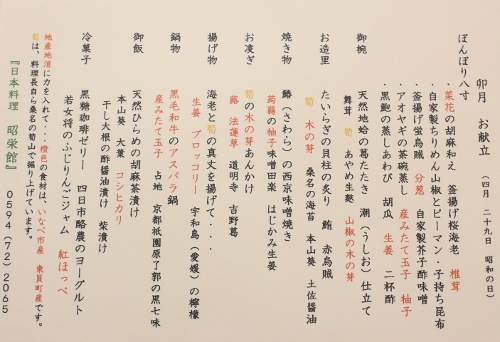 卯月 お献立 (四月 二十九日 昭和の日)
ぼんぼり八寸
・菜花の胡麻和え 釜揚げ桜海老 椎茸
・自家製ちりめん山椒とピーマン・子持ち昆布
・釜揚げ蛍烏賊 分葱 自家製芥子酢味噌
・アオヤギの茶碗蒸し 産みたて玉子 柚子
・黒鮑の蒸しあわび 胡瓜 生姜 二杯酢
御椀 天然地蛤の葛たたき 潮(うしお)仕立て
舞茸 筍 あやめ生麩 山椒の木の芽
お造里 たいらぎの貝柱の炙り 鮪 赤烏賊
筍 木の芽 桑名の海苔 本山葵 土佐醤油
焼き物 鰆(さわら)の西京味噌焼き
蒟蒻の柚子味噌田楽 はじかみ生姜
お凌ぎ 筍の木の芽あんかけ
蕗 法蓮草 道明寺 吉野葛
揚げ物 海老と筍の真丈を揚げて・・・
生姜 ブロッコリー 宇和島(愛媛)の檸檬
鍋物 黒毛和牛のアスパラ鍋
産みたて玉子 占地 京都祇園原了郭の黒七味
御飯 天然ひらめの胡麻茶漬け
本山葵 大葉 コシヒカリ
干し大根の酢醤油漬け 柴漬け
冷菓子 黒糖珈琲ゼリー 四日市酪農のヨーグルト
若女将のふじりんごジャム 紅ほっぺ
地産地消に力を入れて・・・橙色の食材は、いなべ市産 東員町産です。
筍は、料理長自ら桑名の筍山で掘り上げています。
『日本料理 昭栄館』 0594(72)2065